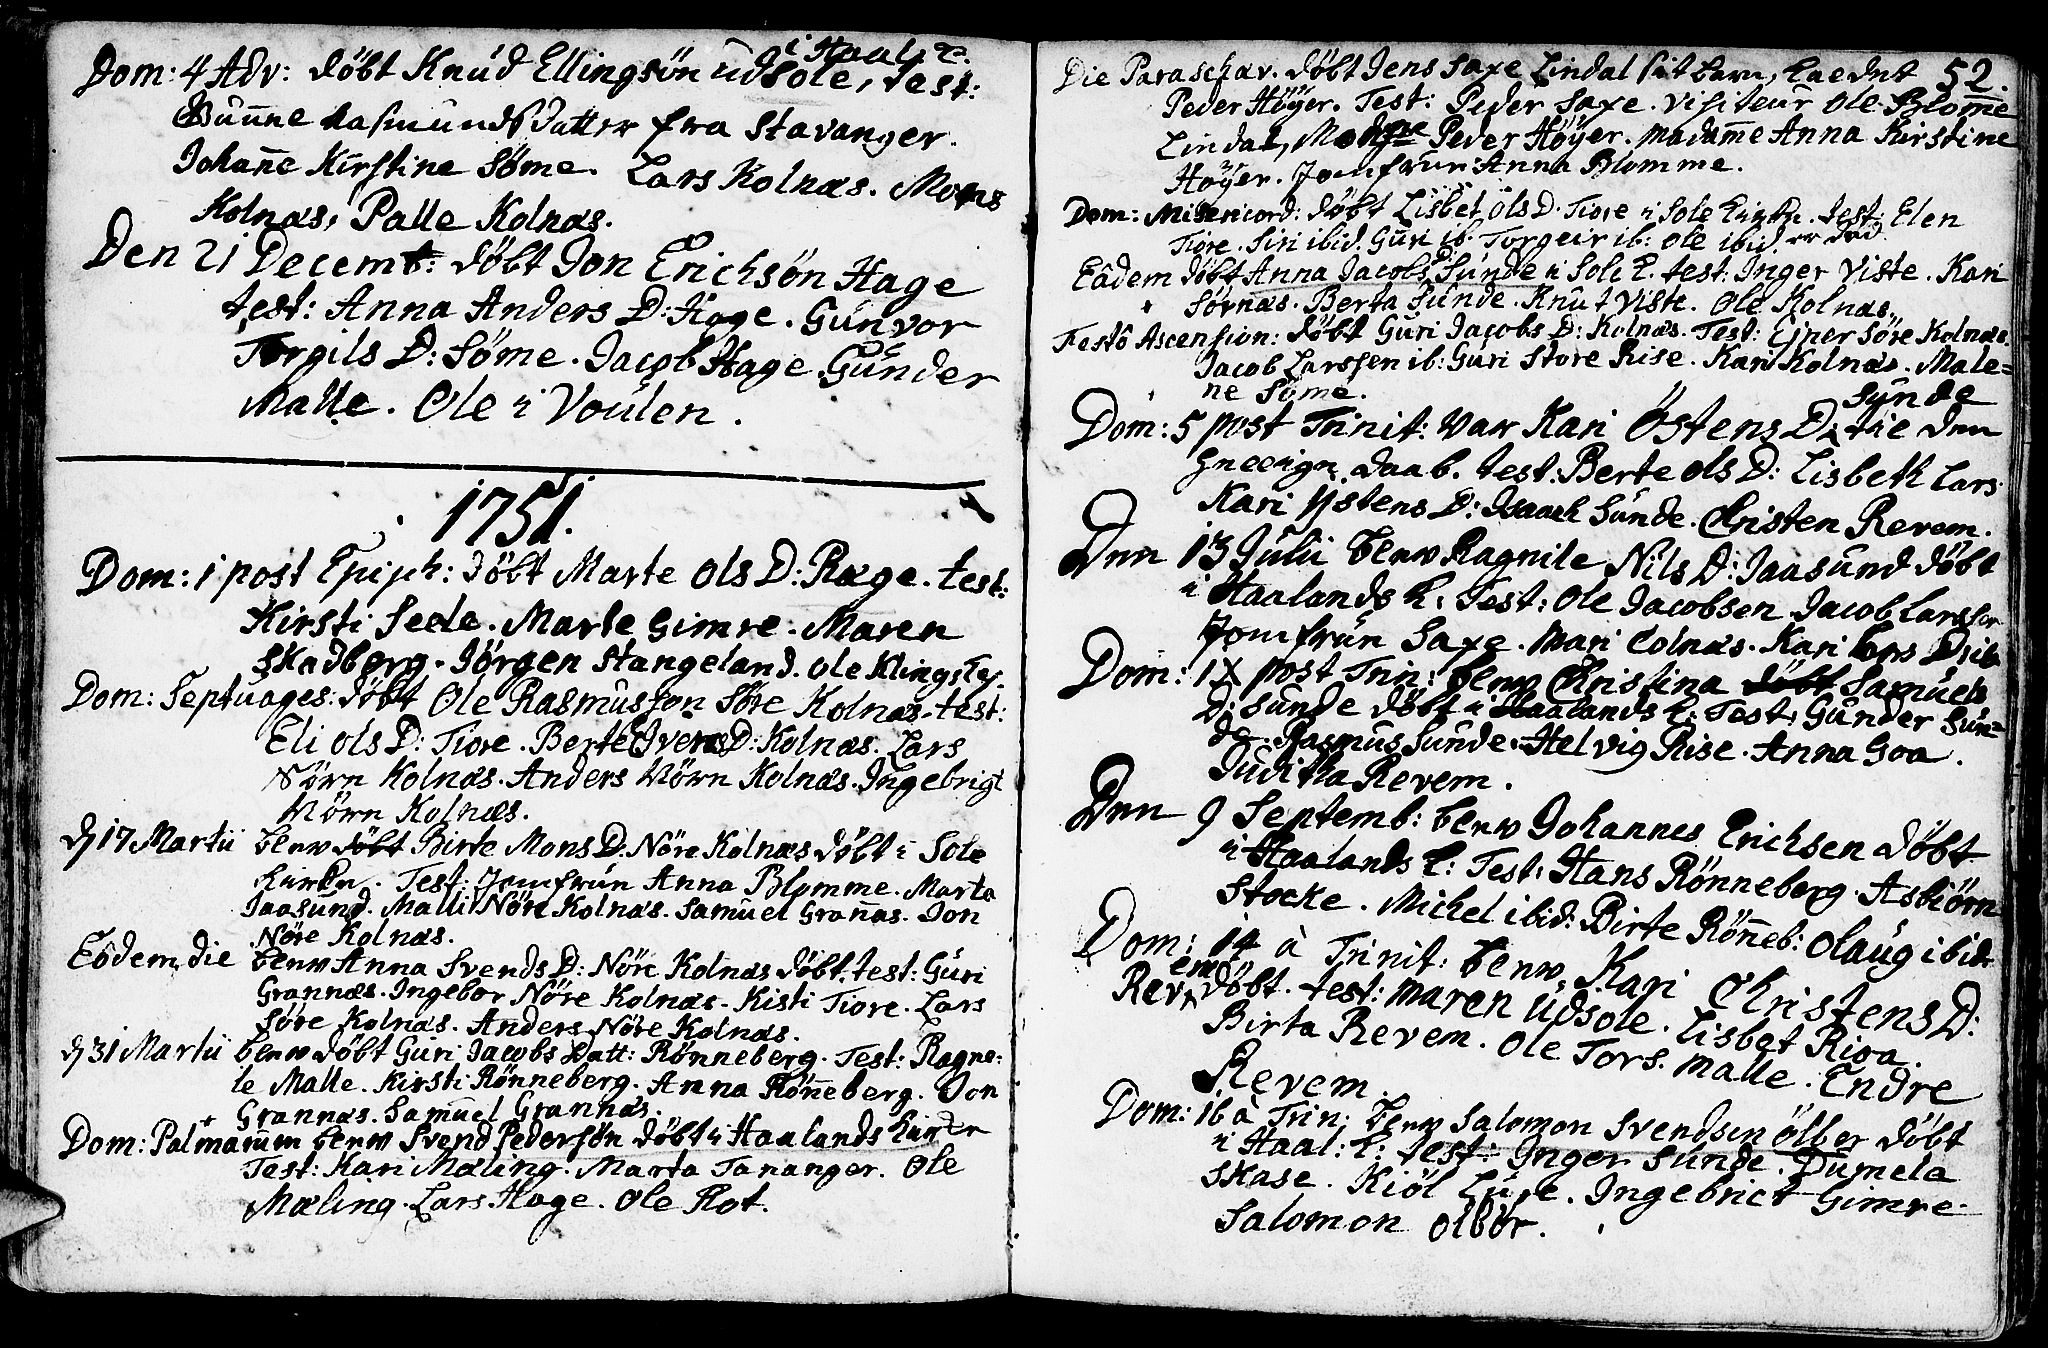 i Haal: k.
Dom: 4 Adv: döbt Knud Ellingsön udsole, test:
Gunne Rasmunds datter fra Stavanger.
Johanne Kirstine Söme. Lars Kolnæs. Mons
Kolnæs, Palle Kolnæs.
Den 21 Decemb: döbt Jon Erichsön Hage
test: Anna Anders D: Hage. Gunvor
Torgils D: Söme. Jacob Hage. Gunder
Malle. Ole i Voulen.
1751.
Dom: 1 post Epiph: döbt Marte Ols D: Ræge. test:
Kirsti Seele. Marte Gimre. Maren
Skadberg. Jörgen Stangeland. Ole
Dom: Septuages: döbt Ole Rasmusson Söre Kolnæs. test:
Eli Ols D: Tiore. Berte Ivers D: Kolnæs. Lars
Nörn Kolnæs. Anders Nörn Kolnæs. Ingebrigt
Nörn Kolnæs.
d 17 Martii blew döbt Birte Mons D: Nöre Kolnæs döbt i Sole
kirke. Test: Jomfrün Anna Blomme. Marta
Jaasund. Malli Nöre Kolnæs. Samuel Grannæs. Jon
Nöre Kolnæs.
Eôdem die blew Anna Svends D: Nöre Kolnæs döbt. test: Guri
Grannæs. Ingebor Nöre Kolnæs. Kisti Tiore. Lars
Söre Kolnæs. Anders Nöre Kolnæs.
d 31 Martii blew döbt Guri Jacobs Datt: Rönneberg. Test: Ragne-
le Malle. Kirsti Rönneberg. Anna Rönneberg. Jon
Grannæs. Samuel Grannæs.
Dom: Palmarum blew Svend Pedersön döbt i Haalands kirke
Test: Kari Mæling. Marta Tananger. Ole
Mæling. Lars Hage. Ole Rot.
52.
Die Paraschæv. döbt Jens Saxe Lindal sit barn, kaldet
Peder Höÿer. Test: Peder Saxe. Visiteur Ole Blome
Lindal, Peder Höÿer. Madame Anna Kirstine
Höÿer. Jomfrün Anna Blomme.
Dom: Misericord: döbt Lisbet Ols D. Tiore i Sole kirke. test: Elen
Tiore. Siri ibid. Guri ib: Torgeir ib: Ole ibid.
Eâdem döbt Anna Jacobs Sünde i Sole k. test: Inger Viste. Kari
Sörnæs. Berta Sünde. Knut Viste. Ole Kolnæs.
Festô Ascension: döbt Guri Jacobs D: Kolnæs. Test: Ejner Söre Kolnæs.
Jacob Larssen ib: Guri Store Rise. Kari Kolnæs. Male=
ne Söme.
Synde
Dom: 5 post Trinit: var Kari Östens D: tie den
daab. test: Berte Ols D: Lisbeth Lars
Kari Ÿstens D: Isaach Sünde. Christen Revem.
Den 13 Julii blew Ragnile Nils D: Jaasund döbt
i Haalands k. Test: Ole Jacobsen. Jacob Larssen
Jomfrün Saxe. Mari Colnæs. Kari Lars D: ib:
Dom: IX post Trin: blew Christina döbt Samuels
D: Sunde döbt i Haalands k. Test: Gunder Sün=
de. Rasmus Sunde. Helvig Riise. Anna Goa.
Juditha Revem.
Den 9 Septemb: blew Johannes Erichsen döbt
i Haalands k: Test: Hans Rönneberg. Asbiörn
Stocke. Michel ibid: Birte Rönneb: Olaug ibid:
Dom: 14 à Trinit: blew Kari Christens D:
Revem döbt. test: Maren Udsole. Lisbet Risa.
Birta Revem. Ole Tors. Malle. Endre
Revem.
Dom: 16 à Trin: blew Salomon Svendsen Ölbör döbt
i Haal: k: test: Inger Sunde. Dumela
Skase. Kiöl Lÿre. Ingebrict Gimre.
Salomon Olbör.